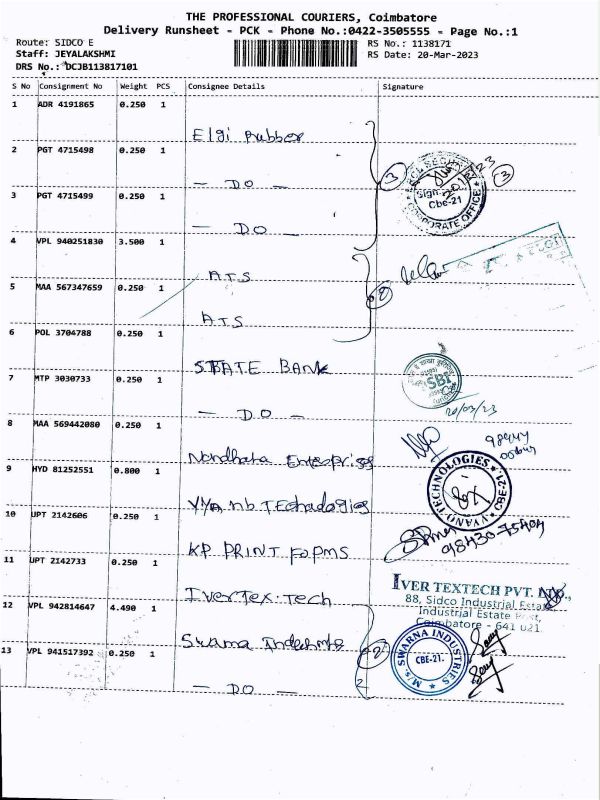 THE PROFESSIONAL COURIERS, Coimbatore
Delivery Runsheet - PCK - Phone No.:0422-3505555 - Page No.:1
Route: SIDCO E
Staff: JEYALAKSHMI
DRS No.: DCJB113817101
RS No.: 1138171
RS Date: 20-Mar-2023
S No Consignment No Weight PCS Consignee Details Signature
1 ADR 4191865 0.250 1
Elgi Rubber
2 PGT 4715498 0.250 1
- DO -
3 PGT 4715499 0.250 1
- DO -
3
3
Cbe-21
CORPORATE OFFICE
4 VPL 940251830 3.500 1
ATS
5 MAA 567347659 0.250 1
ATS
2
ELGI
6 POL 3704788 0.250 1
STATE BANK
SBI
7 MTP 3030733 0.250 1
- DO -
20/03/23
8 MAA 569442080 0.250 1
Nandhata Enterprises
9 HYD 81252551 0.800 1
VYANO TECHNOLOGIES
CBE-21
10 UPT 2142606 0.250 1
KP PRINT FORMS
98430-75404
11 UPT 2142733 0.250 1
Ivertex.tech
IVER TEXTECH PVT. LTD.,
88, Sidco Industrial Estate,
Industrial Estate Post,
Coimbatore - 641 021.
12 VPL 942814647 4.490 1
Swarna Industries
13 VPL 941517392 0.250 1
- DO -
2
M/s. SWARNA INDUSTRIES
CBE-21.